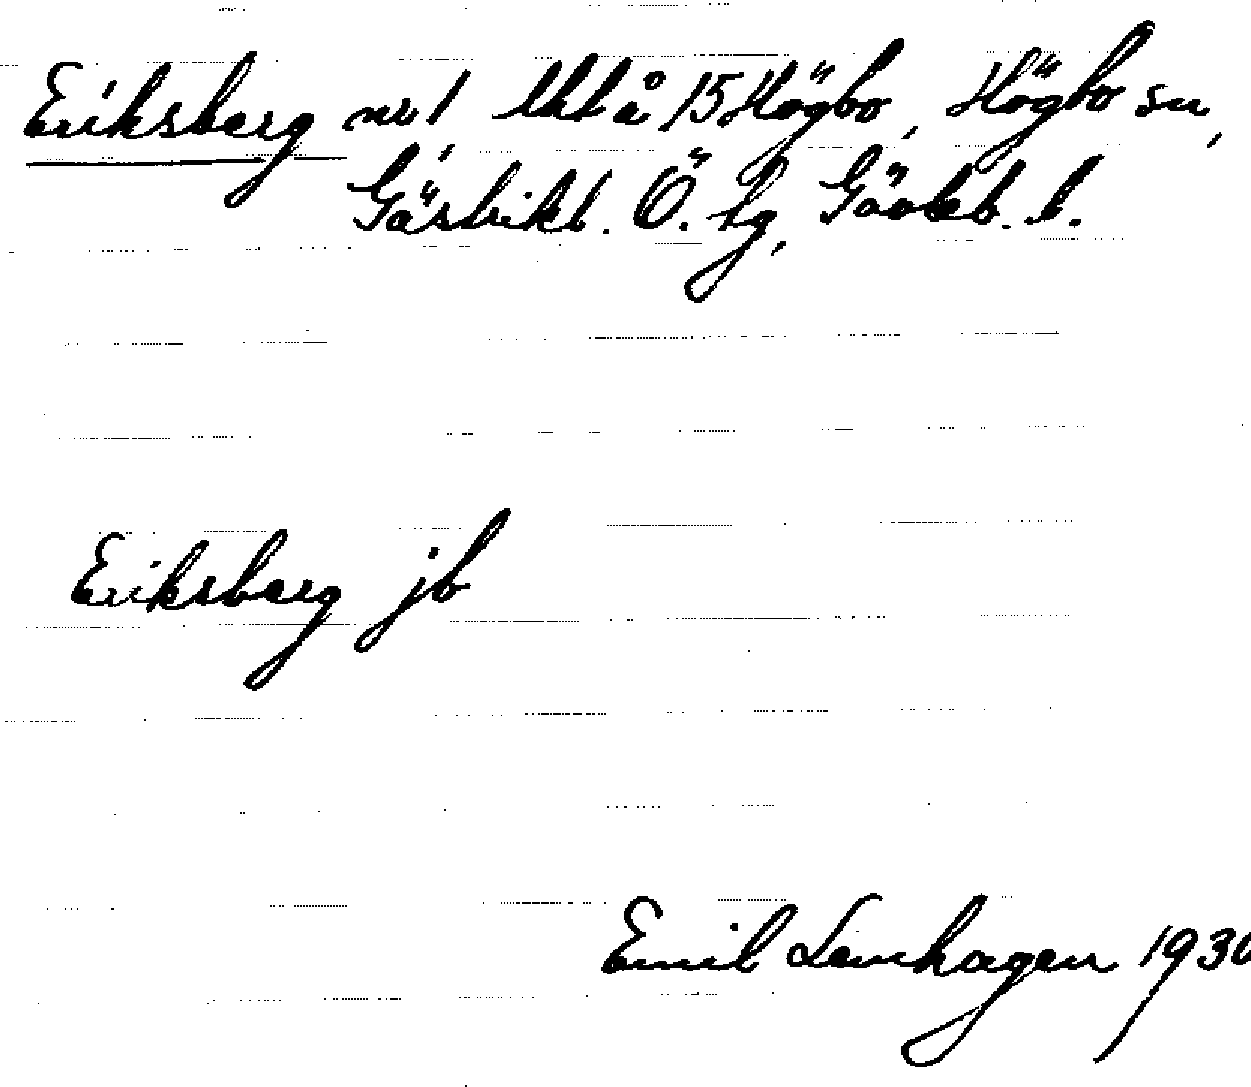 Eriksberg nr 1, lht å 15 Högbo, Högbo sn,
Gästrikl. Ö. tg, Gävleb. l.
Eriksberg jb
Emil Lenhagen 1930